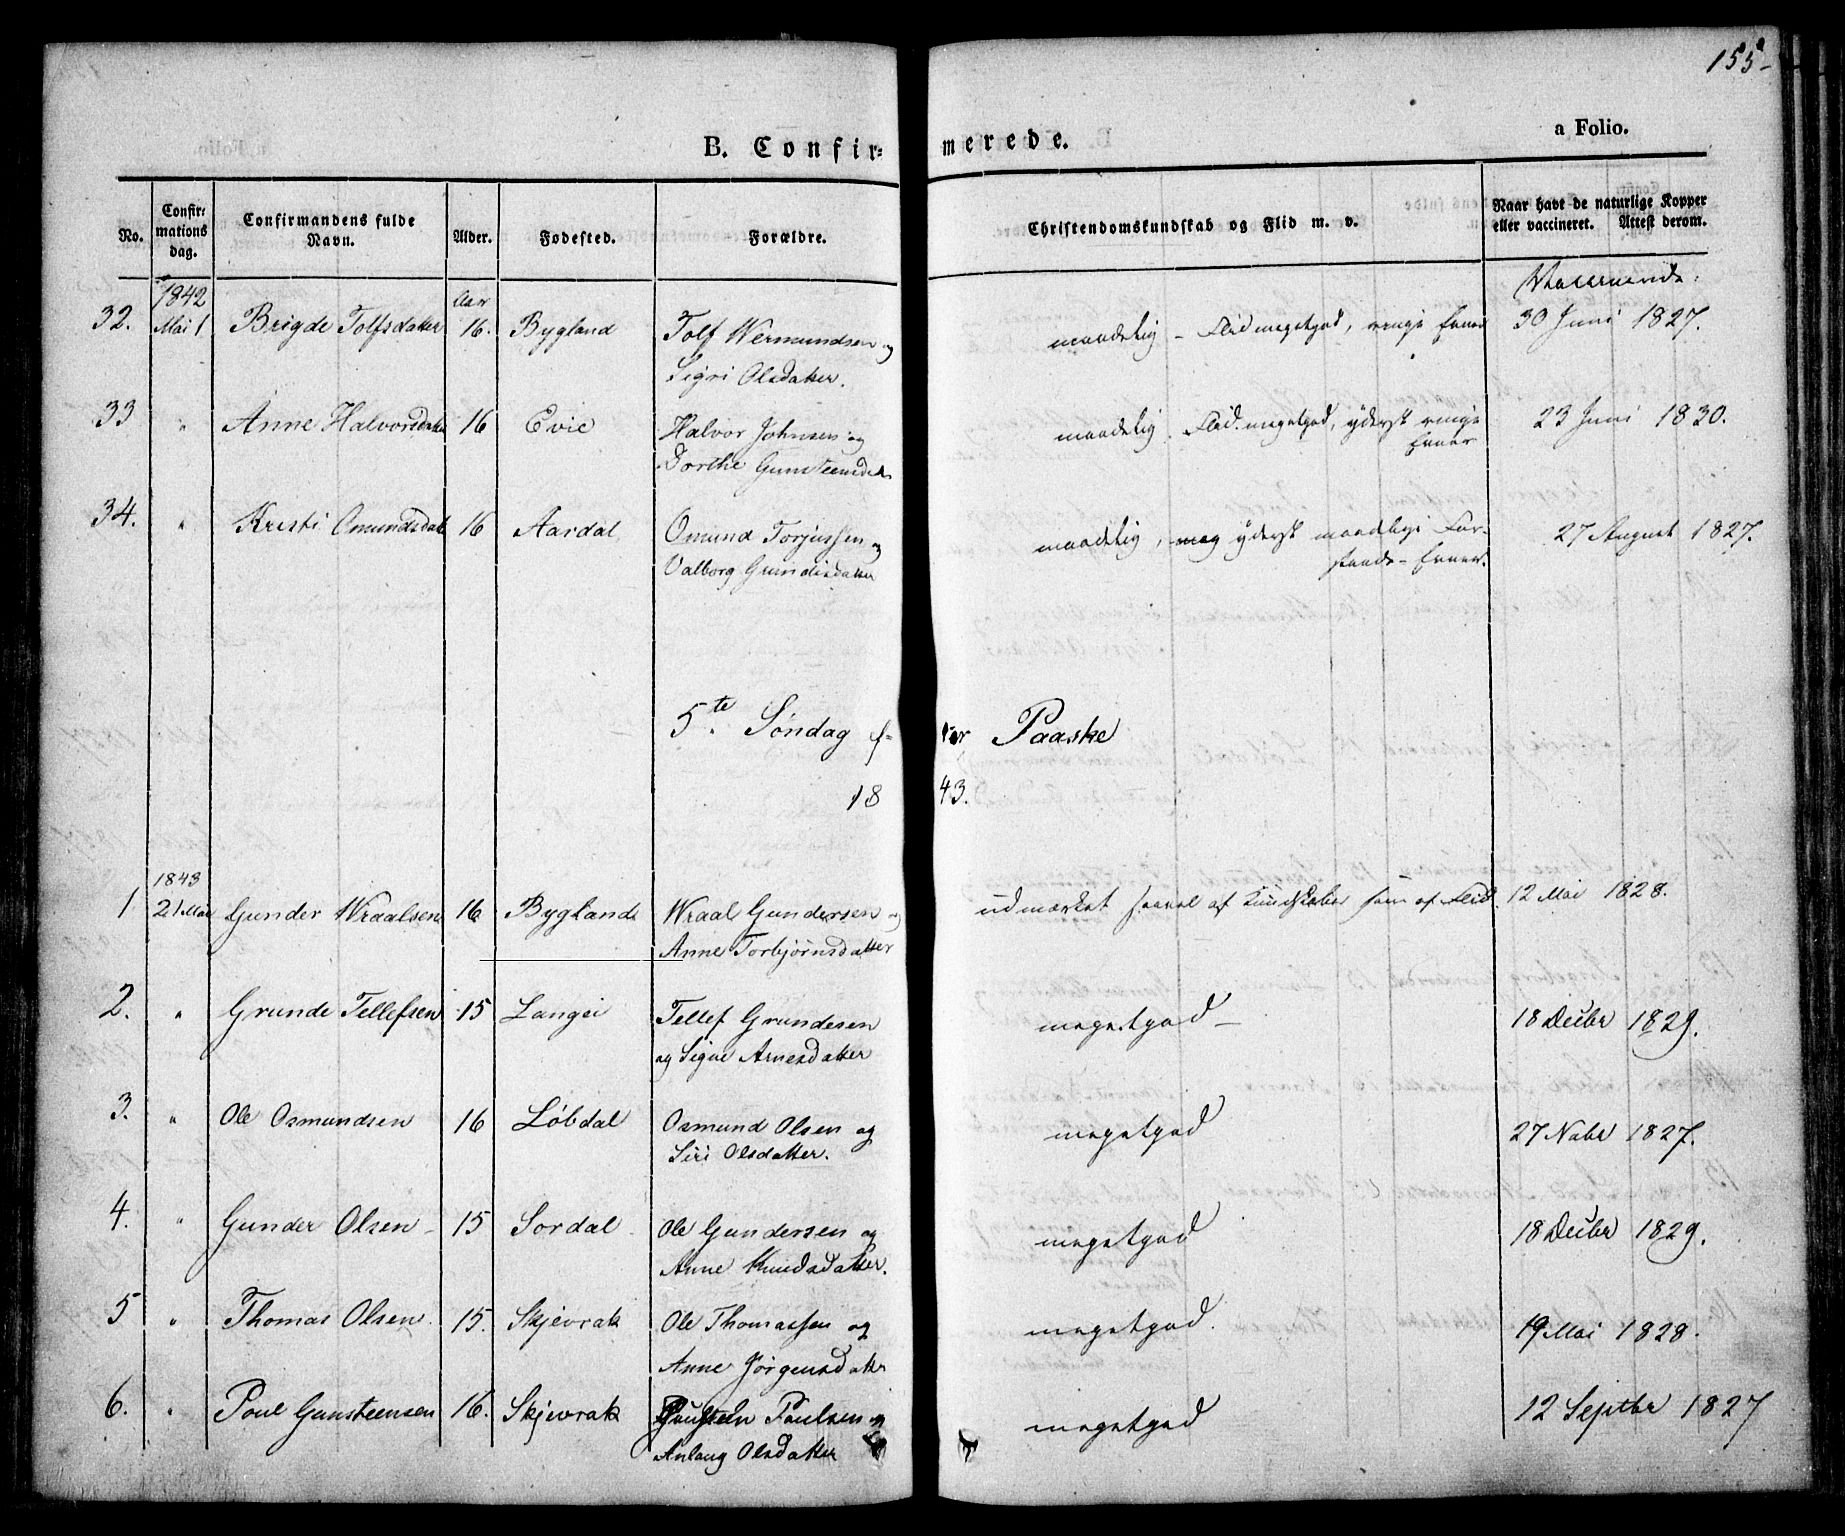 155
B. Confirmerede.
a Folio.
No.
Confirmations dag.
Confirmandens fulde Navn.
Alder.
Fødested.
Forældre.
Christendomskundskab og Flid m. v.
Naar havt de naturlige Kopper eller vaccineret. Attest derom.
1842 Aar
32. Mai 1 Brigde Tolfsdatter 16. Bygland Tolf Wermundsen og maadelig - Flid megetgod, ringe Evner 30 Juni 1827.
Sigri Olsdatter.
33 " Anne Halvorsdatter 16 Evie Halvor Johnsen og maadelig. Flid megetgod, yderst ringe 23 Juni 1830.
Dorthe Gunsteensdatter Evner
34. " Kristi Omundsdatter 16 Aardal Omund Torjussen og maadelig, meg yderst maadelige For- 27 August 1827.
Valborg Gundersdatter stands-Evner.
5te Søndag efter Paaske
1843.
1843
1 21 Mai Gunder Wraalsen 16 Byglande Wraal Gundersen og udmærket saavel af Kundskaber som af Flid 12 Mai 1828.
Anne Torbjørnsdatter
2. " Grunde Tellefsen 15 Langei Tellef Grundesen megetgod - 18 Decbr 1829.
og Signe Arnesdatter
3. " Ole Osmundsen 16 Løbdal Osmund Olsen og megetgod 27 Novbr 1827.
Siri Olsdatter.
4. " Gunder Olsen - 15 Sordal Ole Gundersen og megetgod 18 Decbr 1829.
Anne Knudsdatter.
5 " Thomas Olsen. 15. Skjevrak Ole Thomassen og megetgod. 19 Mai 1828.
Anne Jørgensdatter
6. " Poul Gunsteensen 16. Skjevrak Gunsteen Paulsen og megetgod 12 Septbr 1827
Anlaug Olsdatter